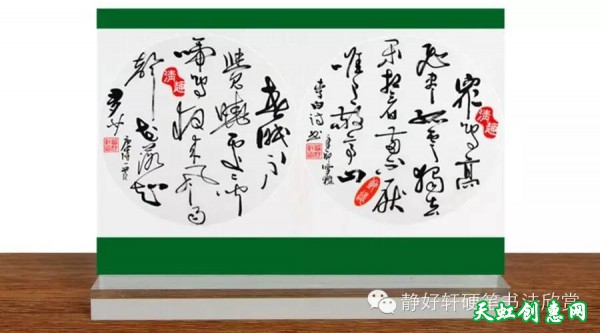 众鸟高
飞尽孤云独去
闲相看两不厌
唯有敬亭山
李白诗
清趣
春眠不
觉晓处处闻
啼鸟夜来风雨
声花落知
多少
唐诗一首
清趣
静好轩硬笔书法欣赏
天虹创惠网